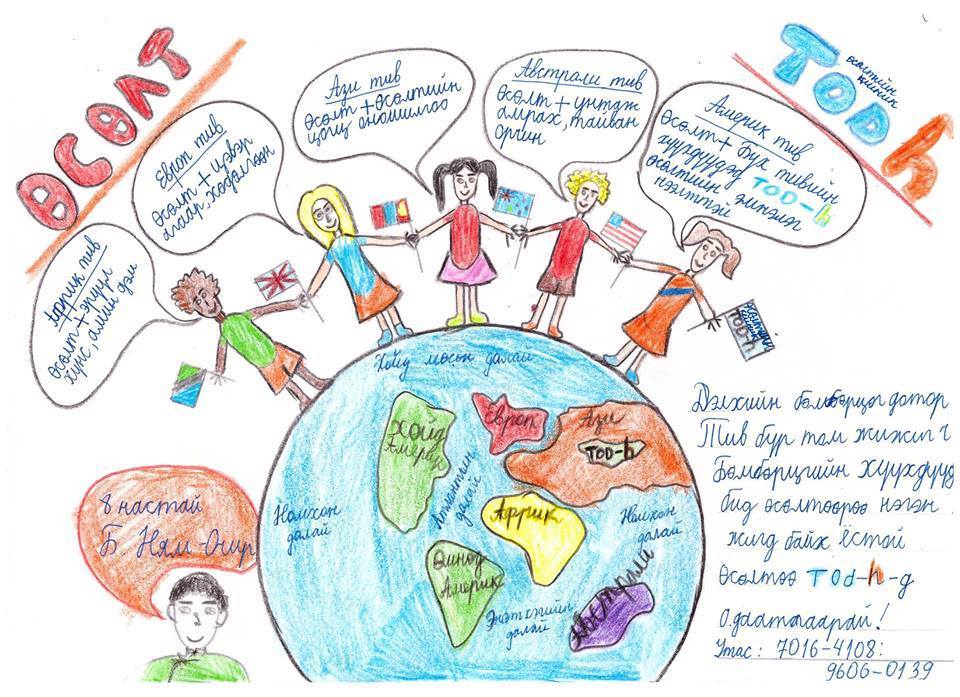 ӨСӨЛТ
TOD h
өсөлтийн
клиник
Африк тив
өсөлт + эрүүл
хүнс, амин дэм
Европ тив
өсөлт + цэвэр
агаар, хөдөлгөөн
Ази тив
өсөлт + өсөлтийн
цогц оношилгоо
Австрали тив
өсөлт + унтаж
амрах, тайван
орчин
Америк тив
өсөлт + бүх тивийн
хүүхдүүдэд TOD-h
өсөлтийн эмнэлэг
нээлттэй
өсөлтийн
клиник
TOD-h
Хойд мөсөн далай
Хойд
Америк
Европ
Ази
TOD-h
Атлантын
далай
Номхон
далай
Африк
Номхон
далай
Өмнөд
Америк
Энэтхэгийн
далай
Австрали
8 настай
Б. Ням-Очир
Дэлхийн бөмбөрцөг дотор
Тив бүр том жижиг ч
Бөмбөрцгийн хүүхдүүд
бид өсөлтөөрөө нэгэн
жигд байх ёстой
Өсөлтөө TOd-h-д
даатгаарай!
Утас: 7016-4108:
9606-0139